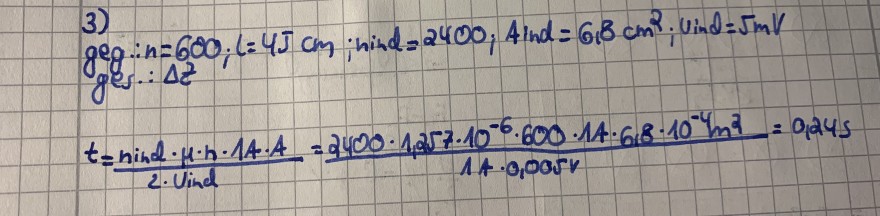 3)
geg.: n=600; l=45 cm; nind=2400; Aind=6,8 cm²; Uind=5mV
ges.: Δt
t = nind·μ·n·1A·A / 2·Uind = 2400·1,257·10⁻⁶·600·1A·6,8·10⁻⁴m² / 1A·0,005V = 0,24s